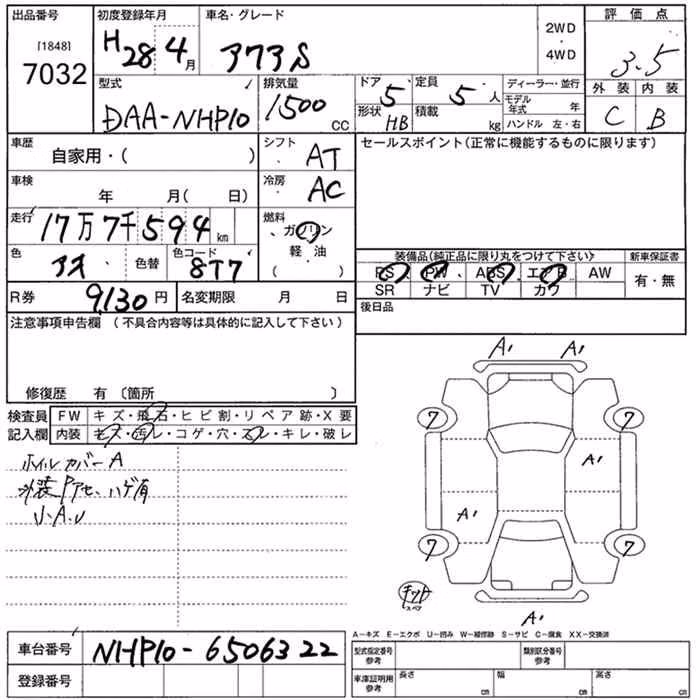 出品番号 初度登録年月 車名・グレード 2WD・4WD 評価点
[1848]
7032 H28 4月 アクアS 3.5
外装 内装
C B
型式 排気量 ドア 定員 ディーラー・並行
DAA-NHP10 1500cc 5 5人 モデル年式 年
形状 HB 積載 kg ハンドル 左・右
車歴 自家用・( ) シフト AT セールスポイント(正常に機能するものに限ります)
車検 年 月( 日) 冷房 AC
走行 17万7千594km 燃料 ガソリン
軽・油
( )
色 色替 色コード 8T7
装備品(純正品に限り丸をつけて下さい) 新車保証書
PS PW ABS エアB AW 有・無
SR ナビ TV カワ
R券 9,130円 名変期限 月 日 後日品
注意事項申告欄(不具合内容等は具体的に記入して下さい)
修復歴 有 〔箇所 〕
検査員 FW キズ・飛石・ヒビ割・リペア跡・X要
記入欄 内装 キズ・汚レ・コゲ・穴・スレ・キレ・破レ
ホイルカバーA
外装Pアセ、ハゲ有
U.A.U
A1 A1
7 7
A1
A1
7 7
キット
スペア
A1
A-キズ E-エクボ U-凹み W-補修跡 S-サビ C-腐食 XX-交換済
車台番号 NHP10-6506322
型式指定番号 参考 類別区分番号 参考
登録番号
車庫証明用 参考 長さ cm 幅 cm 高さ cm